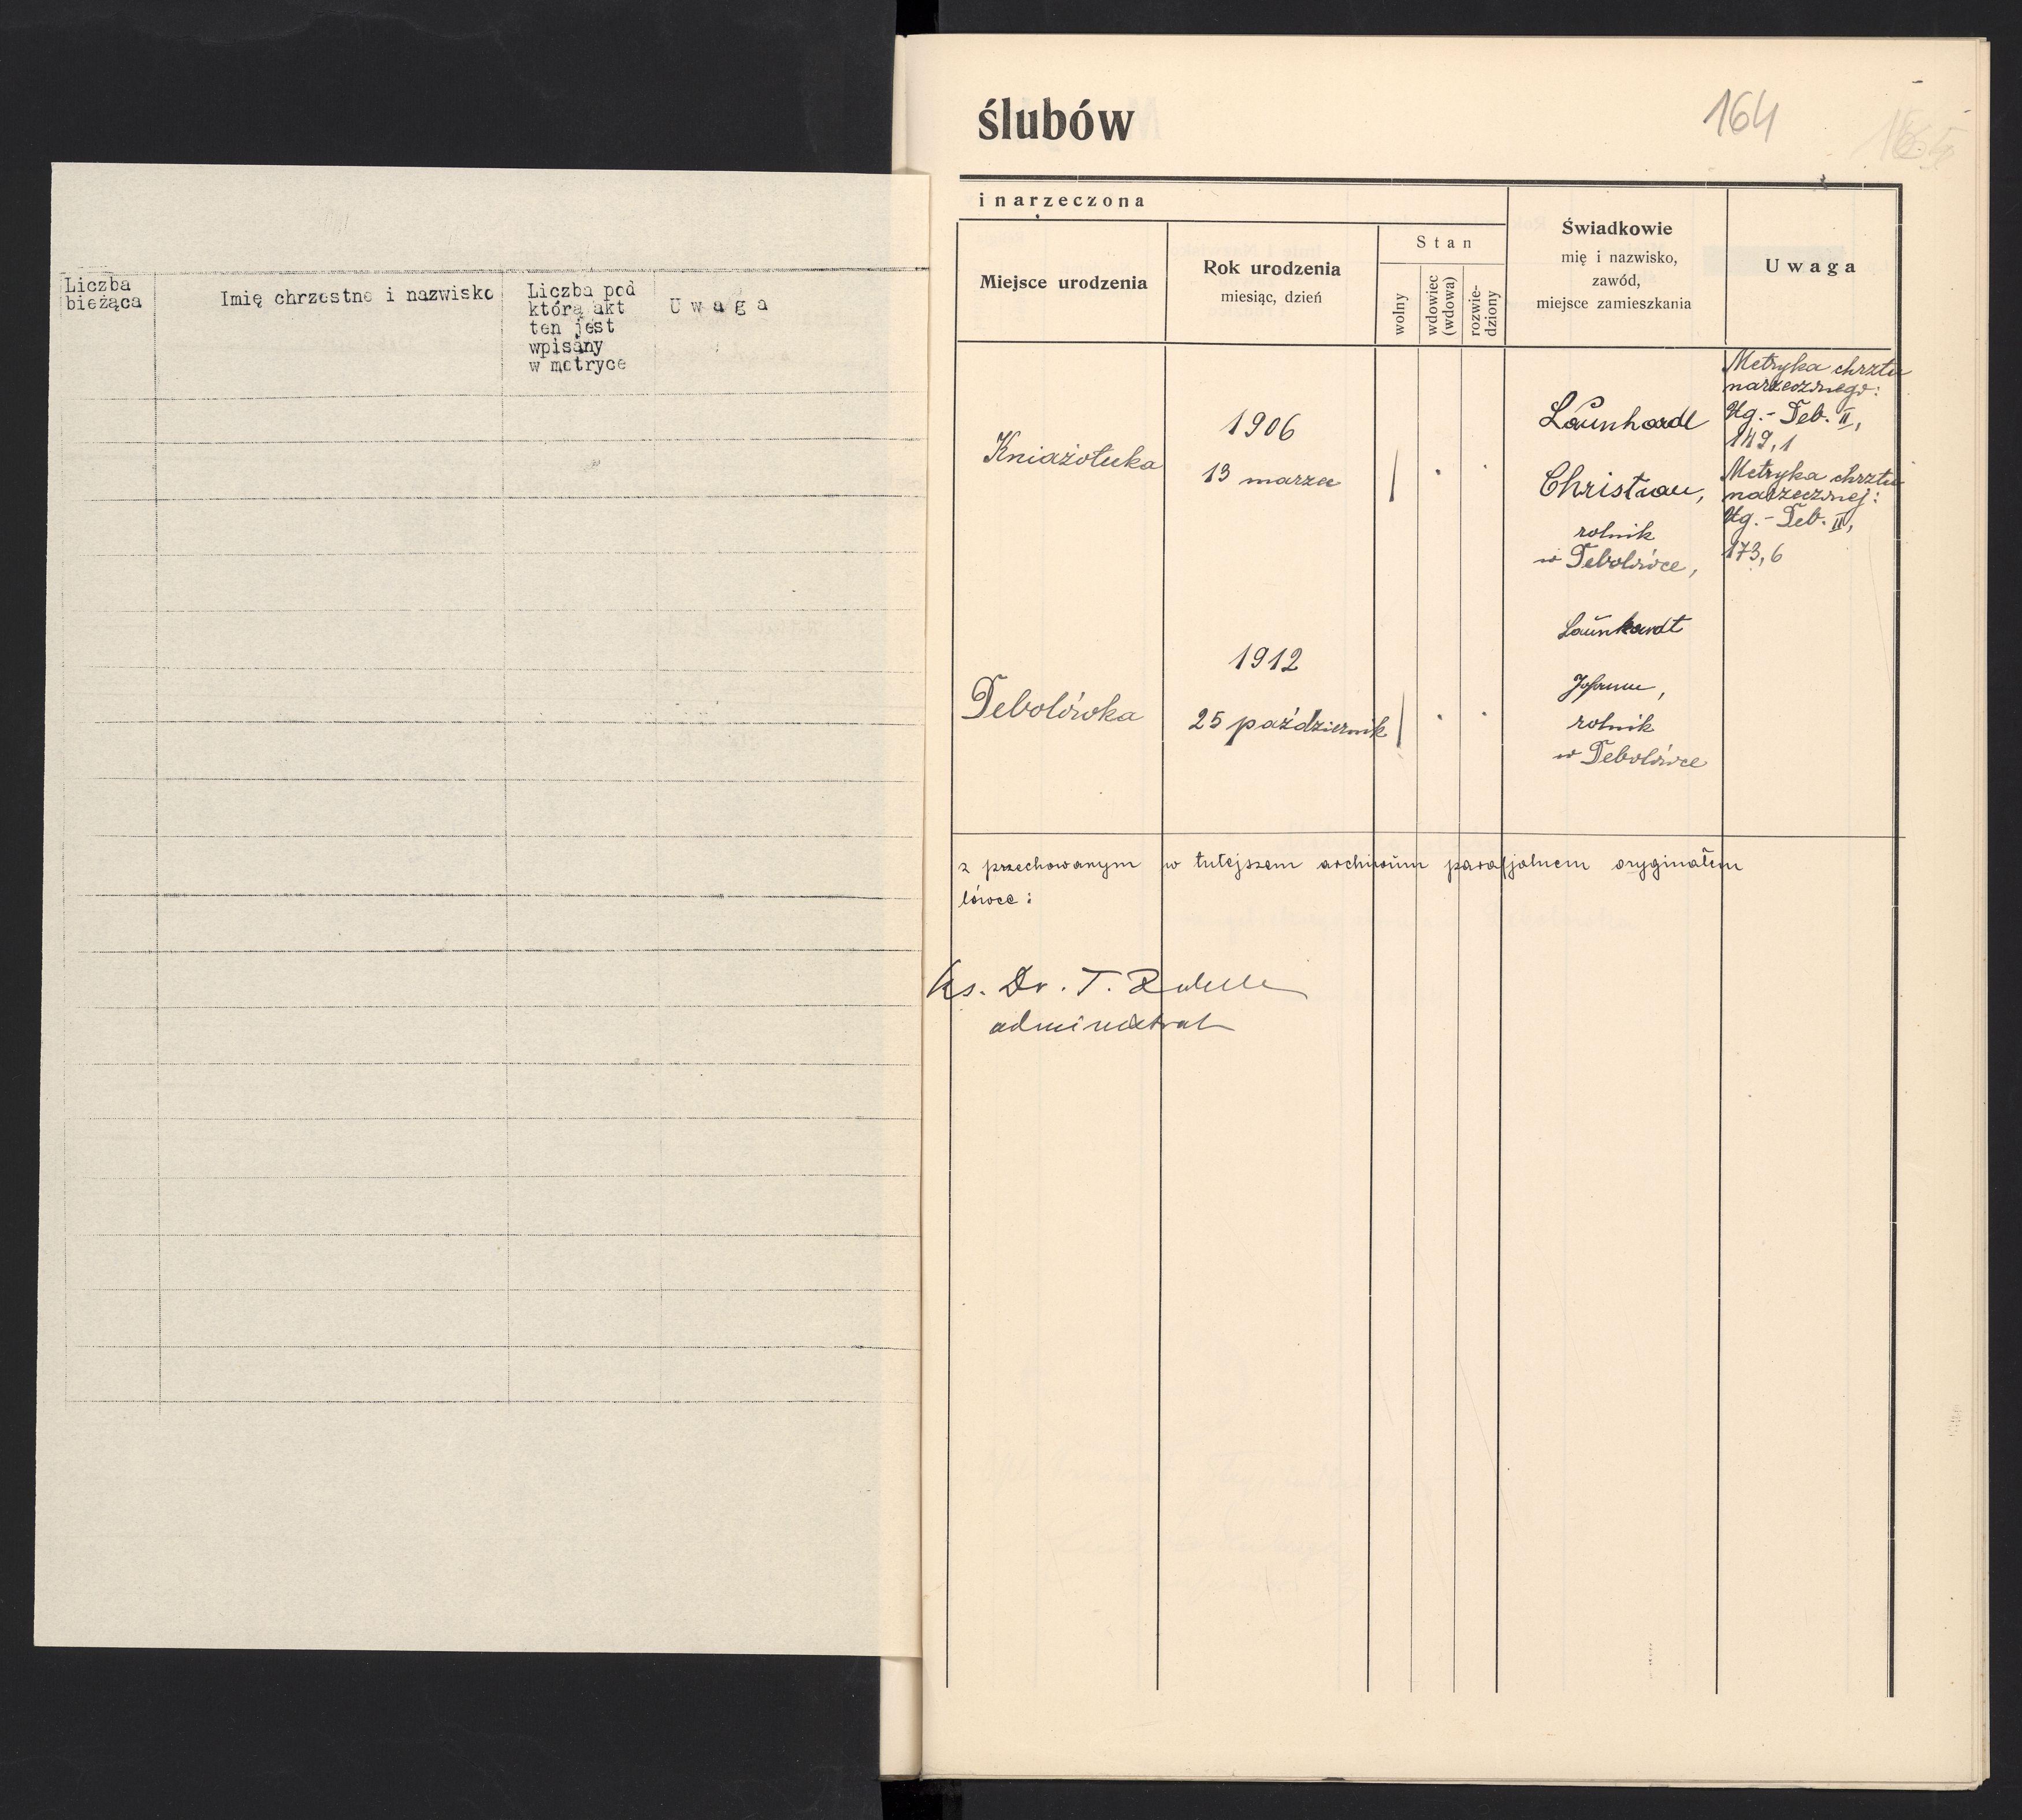 Liczba
bieżąca
Imię chrzestne i nazwisko
Liczba pod
którą akt
ten jest
wpisany
w metryce
Uwaga
ślubów
164
i narzeczona
Miejsce urodzenia
Rok urodzenia
miesiąc, dzień
Stan
wolny
wdowiec
(wdowa)
rozwie-
dziony
Świadkowie
mię i nazwisko,
zawód,
miejsce zamieszkania
Uwaga
Kniażołuka
1906
13 marzec
Christian,
rolnik
w Debolówce,
Metryka chrztu
narzeczonego:
Ug.-Deb. II,
149,1
Metryka chrztu
narzecznej:
Ug.-Deb. II,
173,6
Debolówka
1912
25 październik
Launhardt
Johann,
rolnik
w Debolówce
z przechowanym w tutejszem archiwum parafjalnem oryginałem
lówce:
Ks. Dr. T.